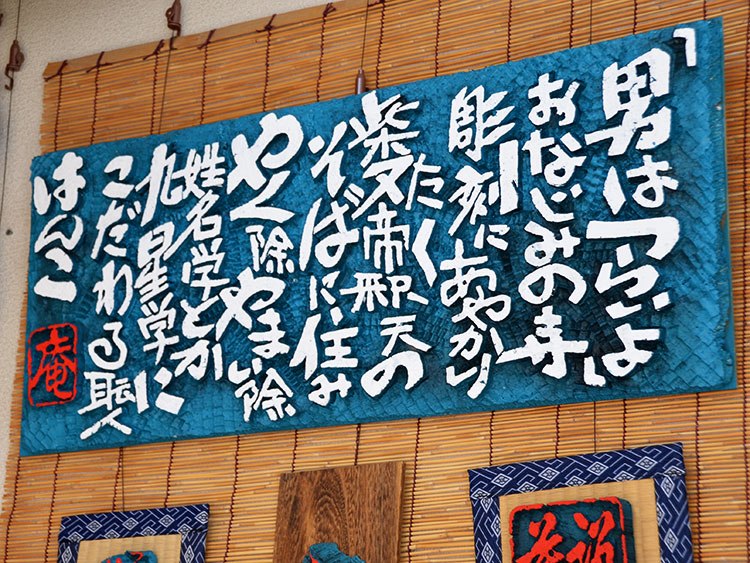 「男はつらいよ
おなじみの寺
彫刻にあやかり
たく
柴又帝釈天の
そばに住み
やく除やまい除
姓名学とか
九星学に
こだわる職人
はんこ
庵